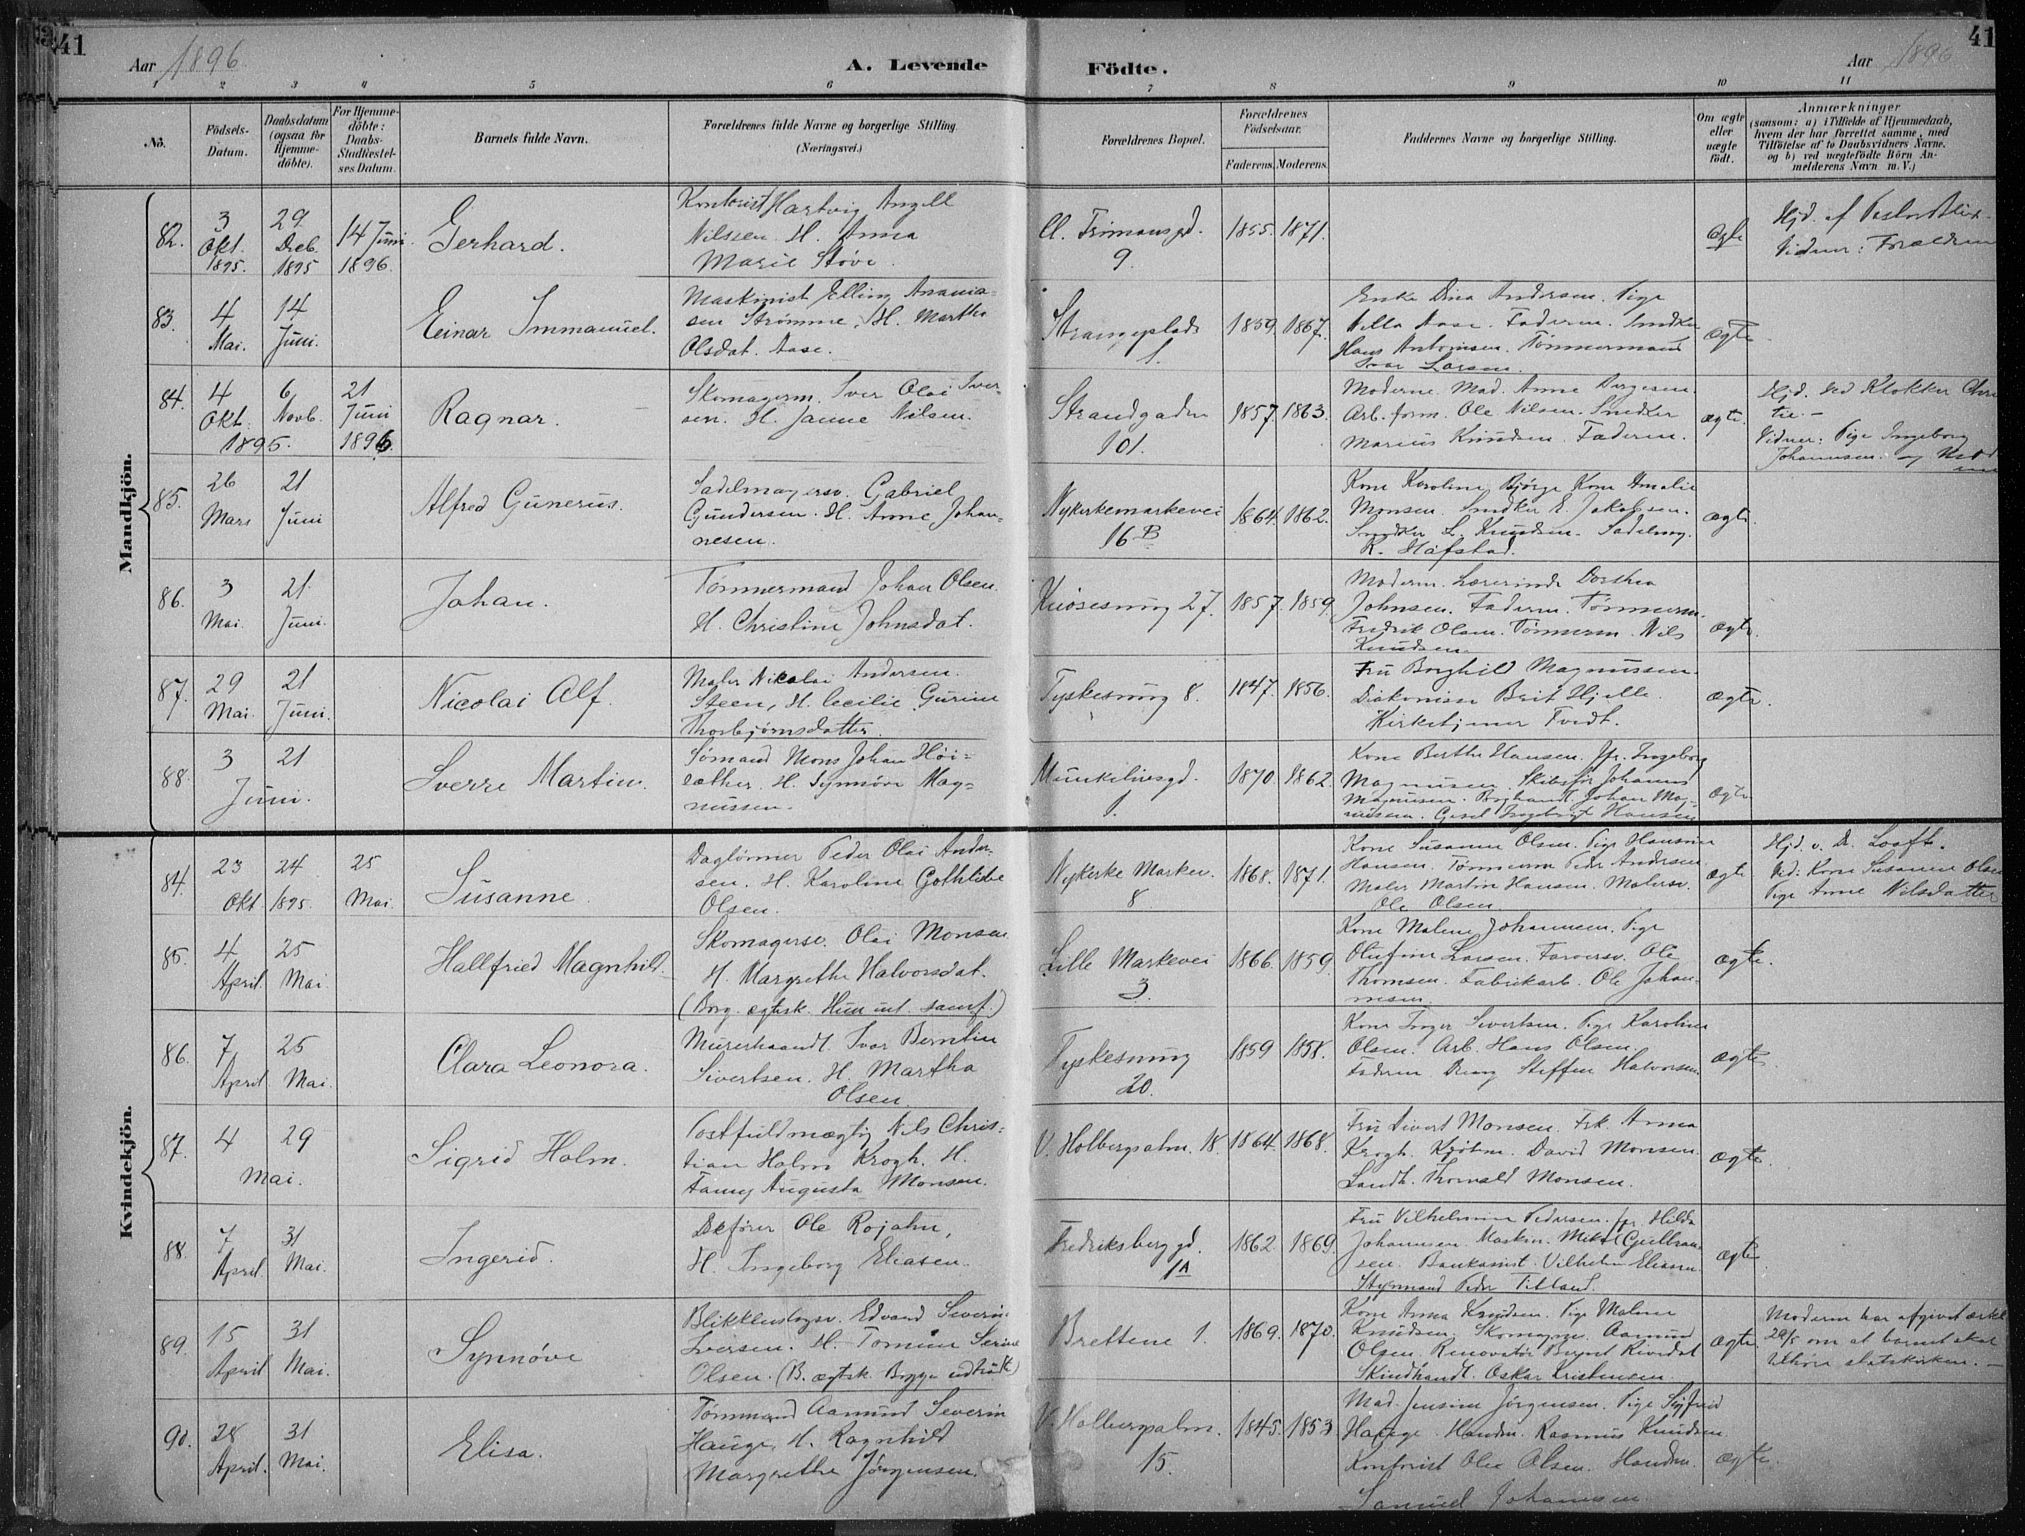 41
Aar 1896.
A. Levende
Födte.
Aar 1896
41
1 2 3 4 5 6 7 8 9 10 11
No.
Födsels-
Datum.
Daabsdatum
(ogsaa for
Hjemme-
döbte).
For Hjemme-
döbte:
Daabs-
Stadfæstel-
ses Datum.
Barnets fulde Navn.
Forældrenes fulde Navne og borgerlige Stilling.
(Næringsvei.)
Forældrenes Bopæl.
Forældrenes
Födselsaar.
Faderens. Moderens.
Faddernes Navne og borgerlige Stilling.
Om ægte
eller
uægte
födt.
Anmærkninger
(saasom: a) i Tilfælde af Hjemmedaab,
hvem der har forrettet samme, med
Tilföielse af to Daabsvidners Navne,
og b) ved uægtefödte Börn An-
melderens Navn m. V.)
Mandkjön.
82.
3
Okt.
1895.
29
Decb.
1895
14 Juni
1896.
Gerhard.
Kontorist Hartvig Angell
Nilssen. H. Anna
Marie Støve.
Cl. Frimansgd.
9.
1855. 1871.
ægte
Hjd. af Pastor
Vidner: Forældrene
83.
4
Mai.
14
Juni.
Einar Immanuel.
Maskinist Elling Anania-
sen Strømme, H. Martha
Olsdat. Aase.
Strangeplads
1.
1859. 1867.
Enke Dina Andersen. Pige
Aase. Faderen. Snedker
Hans Antonisen. Tømmermand
Ivar Larsen.
ægte
84.
4
Okt.
6
Novb.
1895.
21
Juni
1896.
Ragnar.
Skomagerm. Iver Olai Iver-
sen. H. Janne Nilsen.
Strandgaden
101.
1857. 1863.
Moderen. Mad. Anne Børgesen.
Arb. form. Ole Nilsen. Snedker
Marius Knudsen. Faderen.
ægte.
Hjd. ved Klokker
Vidner: Pige Ingeborg
Johannesen. og
85.
26
Mars
21
Juni
Alfred Gunerus.
Sadelmagersv. Gabriel
Gundersen. H. Anne Johan-
nesen.
Nykirkemarkevei
16 B
1864. 1862.
Kone Karoline Bjørge Kone Amalie
Monsen. Snedker E. Jakobsen.
Snedker L. Knudsen. Sadelmag.
K. Hafstad.
ægte.
86.
3
Mai.
21.
Juni.
Johan.
Tømmermand Johan Olsen.
H. Christine Johnsdat.
Knøsesmug 27.
1857. 1859.
Moderen. Lærerinde Dorthea
Johnsen. Faderen. Tømmerm.
Fredrik Olsen. Tømmerm. Nils
Knudsen.
ægte.
87.
29
Mai.
21
Juni.
Nicolai Alf.
Maler Nicolai Andersen.
Steen, H. Cecilie Gurine
Thorbjørnsdatter.
Tyskesmug 8.
1847. 1856.
Fru Borghild Magnussen.
Diakonisse Brit Hjelle
Kirketjener Tvedt.
ægte.
88.
3
21
Juni.
Sverre Martin.
Sømand Mons Johan Høi-
sæther. H. Synnøve Mag-
nussen.
Munkelivsgd.
1.
1870. 1862.
Kone Berthe Hansen. Jfr. Ingeborg
Magnussen. Skibsfør. Johannes
Magnussen. Johan Mag-
nussen. Gesel Ingebrigt Hansen
ægte
Kvindekjön.
84.
23
Okt
24
1895.
25
Mai.
Susanne.
Daglønner Peder Olai Ander-
sen. H. Karoline Gothlibe
Olsen.
Nykirke Marken.
8
1868. 1871.
Kone Susanne Olsen. Pige Hansine
Hansen. Tømmerm Peder Andersen.
Maler Martin Hansen. Malersv.
Ole Olsen.
ægte
Hjd. v. Dr. Looft.
Vid: Kone Susanne Olsen
Pige Anne Nilsdatter
85.
4
April.
25
Mai.
Hallfried Magnhild.
Skomagersv. Olai Monsen
H. Margrethe Halvorsdat.
(Borg. ægtsk.
Lille Markevei
3.
1866. 1859.
Kone Malene Johannesen. Pige
Olufine Larsen. Farversv. Ole
Thomsen. Fabrikarb. Ole Johan-
nesen.
ægte.
86.
7
April
25
Mai.
Clara Leonora.
Murerhaandt. Ivar Berntin
Sivertsen. H. Martha
Olsen.
Tyskesmug
20.
1859 1858.
Kone Inger Sivertsen. Pige Karoline
Olsen. Arb. Hans Olsen.
Faderen. Dreng Steffen Halvorsen.
ægte.
87.
4
29
Mai.
Sigrid Holm.
Postfuldmægtig Nils Chris-
tian Holm Krogh. H.
Fanny Augusta Monsen.
V. Holbergsalm. 18.
1864. 1868.
Fru Sivert Monsen. Frk. Anna
Krogh. Kjøbm. David Monsen.
Landh. Thorvald Monsen.
ægte.
88.
7
April.
31
Mai.
Ingerid.
Skfører Ole Rojahn,
H. Ingeborg Eliasen.
Fredriksberg gd.
1A
1862. 1869.
Fru Vilhelmine Pedersen. fr. Hilda
Johannesen. Maskin. Mikal Gulbran-
sen. Bankassist. Vilhelm Eliasen.
Styrmand Peder Titland.
ægte.
89.
15
April
31
Mai.
Synnøve
Blikkenslagsv. Edvard Severin
Iversen. H. Tomine Serine
Olsen. (B. ægtsk. Brygge udtraadt)
Brettene 1.
1869. 1870.
Kone Anna Knudsen. Pige Malene
Knudsen. Skomager. Aamund
Olsen. Renovatør Bernt Rivedal
Skindhandl. Oskar Kristensen
ægte.
Moderen har afgivet erkl.
29/5 om at barnet skal
tilhøre statskirken.
90.
28
April.
31
Mai.
Elisa.
Tømmermand Aamund Severin
Hauge, H. Ragnhild
Margrethe Jörgensen.
V. Holbergsalm.
15.
1845. 1853
Mad. Jensine Jörgensen. Pige Sigfried
Hauge. Handm. Rasmus Knudsen
Kontorist Olai Olsen. Handm.
Samuel Johannesen.
ægte.